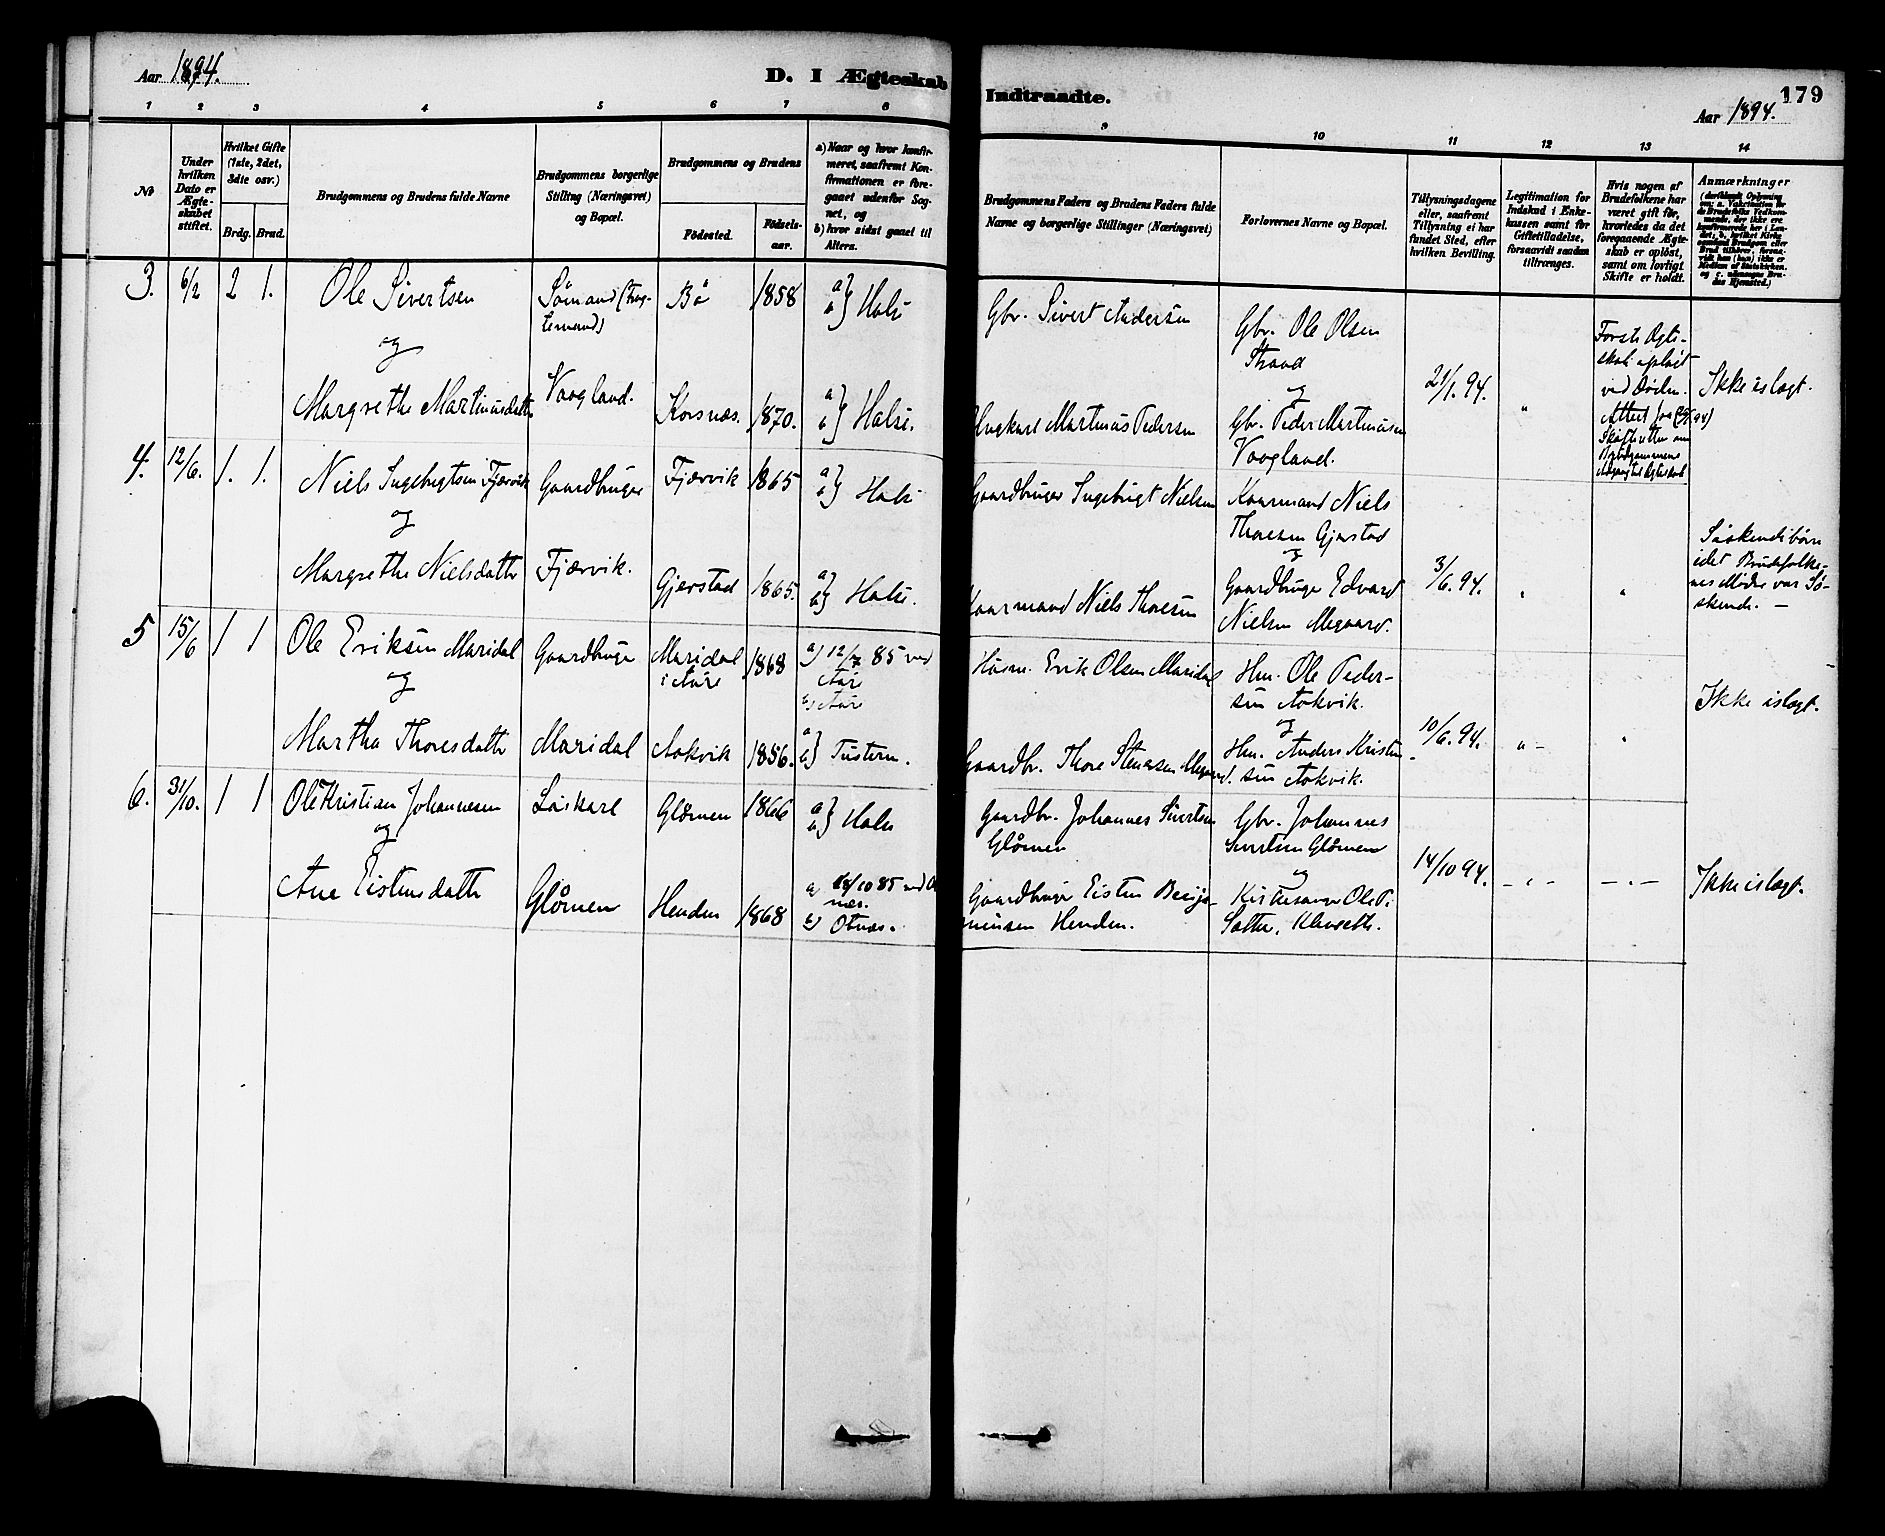 Aar 1894.
D. I Ægteskab
Indtraadte.
179
Aar 1894.
1 2 3 4 5 6 7 8
9 10 11 12 13 14
No
Under hvilken Dato er Ægteskabet stiftet.
Hvilket Gifte (1ste, 2det, 3die osv.)
Brdg. Brud.
Brudgommens og Brudens fulde Navne
Brudgommens borgerlige Stilling (Næringsvei) og Bopæl.
Brudgommens og Brudens
Födested.
Födsels-aar.
a) Naar og hvor konfirmeret, saafremt Konfirmationen er foregaaet udenfor Sognet, og
b) hvor sidst gaaet til Alters.
Brudgommens Faders og Brudens Faders fulde Navne og borgerlige Stillinger (Næringsvei)
Forlovernes Navne og Bopæl.
Tillysningsdagene eller, saafremt Tillysning ei har fundet Sted, efter hvilken Bevilling.
Legitimation for Indskud i Enkekassen samt for Giftetilladelse, forsaavidt saadan tiltrænges.
Hvis nogen af Brudefolkene har været gift før, hvorledes da det foregaaende Ægteskab er oplöst, samt om lovligt Skifte er holdt.
Anmærkninger
3. 6/2 2 1.
Ole Sivertsen
og
Margrethe Martinusdatter
Sömand
Vaagland.
Bö 1858
Korsnæs. 1870.
a b} Halse
a b} Halse.
Gbr. Sivert Andersen
Martinus Pedersen
Gbr. Ole Olsen
Strand
og
Gbr. Peder Martinusen
Vaagland.
21/1. 94.
"
Første Ægte-
skab opløst
ved Døden.
Ikke islægt.
4. 12/6. 1. 1.
Niels Ingebrigtsen Fjærvik
og
Margrethe Nielsdatter
Gaardbruger
Fjærvik.
Fjærvik 1865
Gjerstad 1865.
a b} Halse
a b} Halse.
Gaardbruger Ingebrigt Nielsen
Kaarmand Niels Thoresen
Kaarmand Niels
Thoresen Gjerstad
og
Gaardbruger Edvard
Nielsen Megaard.
3/6. 94.
" "
Söskendebörn
idet Brudefolke-
nes Mödre var Sö-
skende. –
5 15/6 1 1
Ole Eriksen Maridal
og
Martha Thoresdatter
Gaardbruger
Maridal
Maridal
i Aure 1868
Aakvik 1856.
a) 12/7 85 ved
Aure
b) Aure
a b} Tustern.
Husm. Erik Olsen Maridal
Gaardbr. Thore Stenersen Megaard.
Hm. Ole Peder-
sen Aakvik.
og
Hm. Anders Kristen-
sen Aakvik.
10/6. 94.
" - "
Ikke islægt.
6. 31/10. 1 1
Ole Kristian Johannesen
og
Ane Eistensdatter
Löskarl
Glåmen
Glåmen 1866
Henden 1868
a b} Halse
a) 18/10 85 ved Ot
næs.
b) Otnæs.
Gaardbr. Johannes Sivertsen
Glåmen
Gaardbruger Eisten Benja-
minsen Henden.
Gbr. Johannes
Sivertsen Glåmen
og
Kirkesanger Ole P.
Sætter, Klevseth.
14/10 94.
– " – – " –
Ikke islægt.